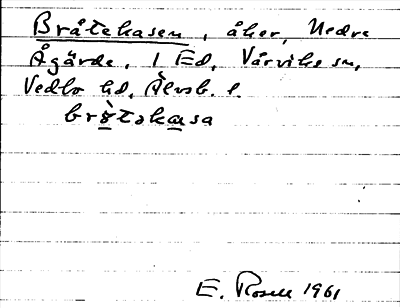 Bråtekasen, åker, Nedre
Ågärde, 1 Ed, Vårviks sn,
Vedbo hd, Älvsb. l.
brò̱təka̱sa
E. Rosell 1961